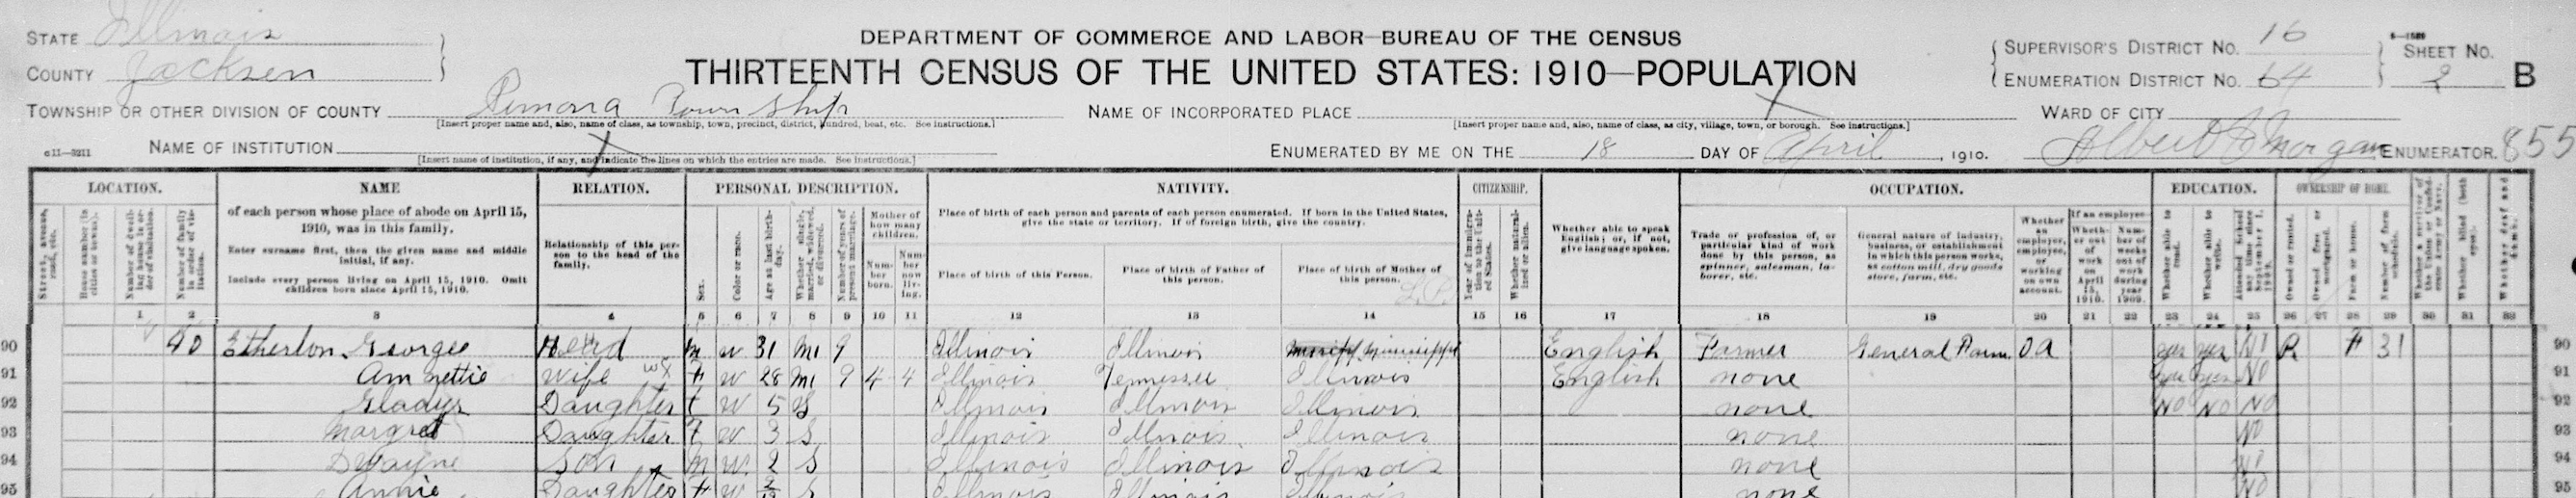 STATE Illinois
COUNTY Jackson
DEPARTMENT OF COMMERCE AND LABOR—BUREAU OF THE CENSUS
THIRTEENTH CENSUS OF THE UNITED STATES: 1910—POPULATION
SUPERVISOR'S DISTRICT No. 16
ENUMERATION DISTRICT No. 64
SHEET No. 2 B
TOWNSHIP OR OTHER DIVISION OF COUNTY Pomona Township
[Insert proper name and, also, name of class, as township, town, precinct, district, hundred, beat, etc. See instructions.]
NAME OF INCORPORATED PLACE X
[Insert proper name and, also, name of class, as city, village, town, or borough. See instructions.]
WARD OF CITY
NAME OF INSTITUTION X
[Insert name of institution, if any, and indicate the lines on which the entries are made. See instructions.]
ENUMERATED BY ME ON THE 18 DAY OF April, 1910. Albert Morgan, ENUMERATOR. 855
LOCATION.
Street, avenue, road, etc.
House number (in cities or towns).
Number of dwelling house in order of visitation.
Number of family in order of visitation.
NAME
of each person whose place of abode on April 15, 1910, was in this family.
Enter surname first, then the given name and middle initial, if any.
Include every person living on April 15, 1910. Omit children born since April 15, 1910.
RELATION.
Relationship of this person to the head of the family.
PERSONAL DESCRIPTION.
Sex.
Color or race.
Age at last birthday.
Whether single, married, widowed, or divorced.
Number of years of present marriage.
Mother of how many children.
Number born.
Number now living.
NATIVITY.
Place of birth of each person and parents of each person enumerated. If born in the United States, give the state or territory. If of foreign birth, give the country.
Place of birth of this Person.
Place of birth of Father of this person.
Place of birth of Mother of this person.
CITIZENSHIP.
Year of immigration to the United States.
Whether naturalized or alien.
Whether able to speak English; or, if not, give language spoken.
OCCUPATION.
Trade or profession of, or particular kind of work done by this person, as spinner, salesman, laborer, etc.
General nature of industry, business, or establishment in which this person works, as cotton mill, dry goods store, farm, etc.
Whether an employer, employee, or working on own account.
If an employee—
Whether out of work on April 15, 1910.
Number of weeks out of work during year 1909.
EDUCATION.
Whether able to read.
Whether able to write.
Attended school any time since September 1, 1909.
OWNERSHIP OF HOME.
Owned or rented.
Owned free or mortgaged.
Farm or house.
Number of farm schedule.
Whether a survivor of the Union or Confederate Army or Navy.
Whether blind (both eyes).
Whether deaf and dumb.
1 2 3 4 5 6 7 8 9 10 11 12 13 14 15 16 17 18 19 20 21 22 23 24 25 26 27 28 29 30 31 32
90 40 Etherton Georgee Head M W 31 M1 9 Illinois Illinois Mississippi English Farmer General Farm OA yes yes R F 31 90
91 Am nettie Wife F W 28 M1 9 4 4 Illinois Tennessee Illinois English none yes yes NO 91
92 Gladys Daughter F W 5 S Illinois Illinois Illinois none NO NO NO 92
93 Margret Daughter F W 3 S Illinois Illinois Illinois none NO 93
94 Dwayne Son M W 2 S Illinois Illinois Illinois none NO 94
95 Annie Daughter F W S Illinois Illinois Illinois none NO 95